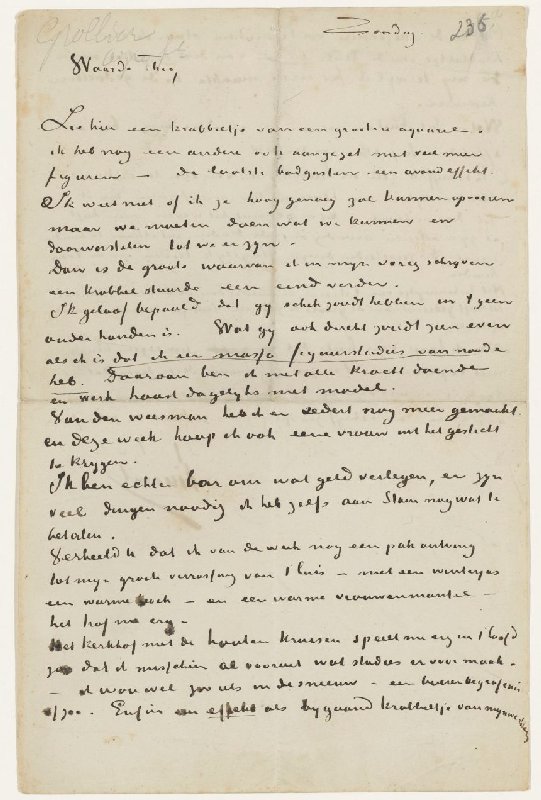 Zondag 236
Waarde Theo,
Zie hier een krabbeltje van een grootere aquarel.
ik heb nog een andere ook aangezet met veel meer
figuren — de laatste badgasten een avondeffekt.
Ik weet niet of ik ze hoog genoeg zal kunnen opvoeren
maar we moeten doen wat we kunnen en
doorworstelen tot we er zijn.
Dan is de groote waarvan ik in mijn vorig schrijven
een krabbel stuurde een eind verder.
Ik geloof bepaald dat gij schik zoudt hebben in 't geen
onder handen is. Wat gij ook direkt zoudt zien even
als ik is dat ik een massa figuurstudies van noode
heb. Daaraan ben ik met alle kracht doende
en werk haast dagelijks met model.
Van den weesman heb ik er sedert nog meer gemaakt.
en deze week hoop ik ook eene vrouw uit het gesticht
te krijgen.
Ik ben echter bar om wat geld verlegen, er zijn
veel dingen noodig ik heb zelfs aan Stam nog wat te
betalen.
Verbeeld U dat ik van de week nog een pak ontving
tot mijn groote verrassing van t huis — met een winterjas
een warme broek — en een warme vrouwenmantel —
het trof me erg.
Het kerkhof met de houten kruisen speelt me erg in t hoofd
zoo dat ik misschien al vooruit wat studies er voor maak.
— ik wou wel zoo iets in de sneeuw — een boerenbegrafenis
of zoo. Enfin een effekt als bijgaand krabbeltje van mijnwerkers